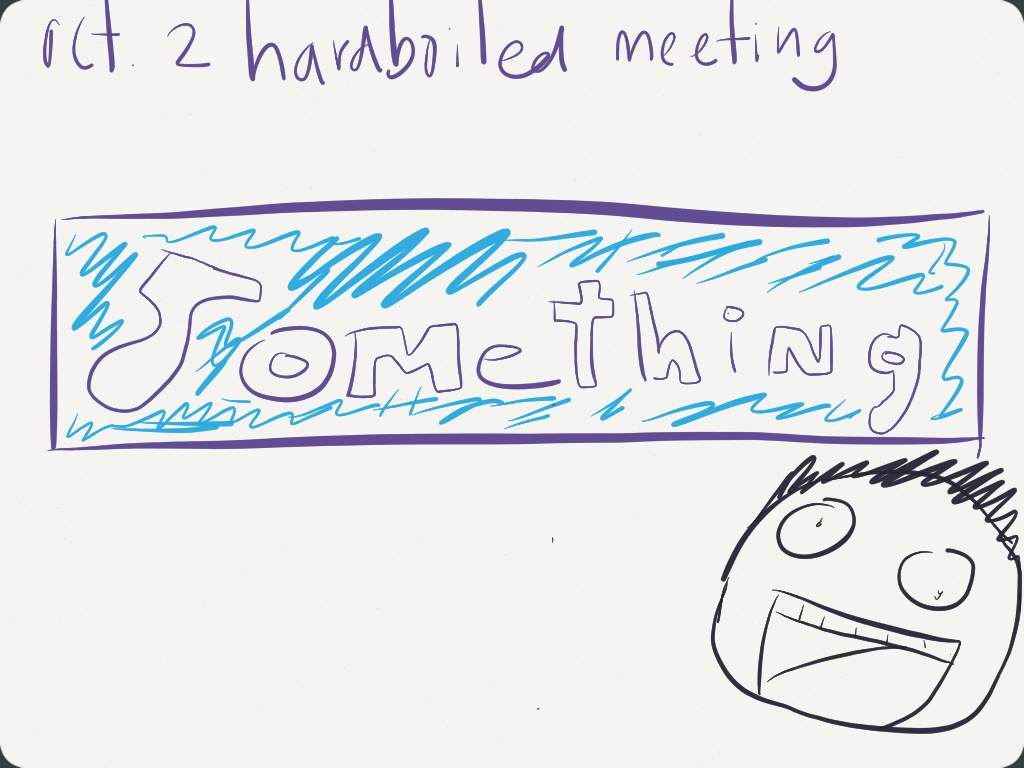 oct. 2 hardboiled meeting
Something